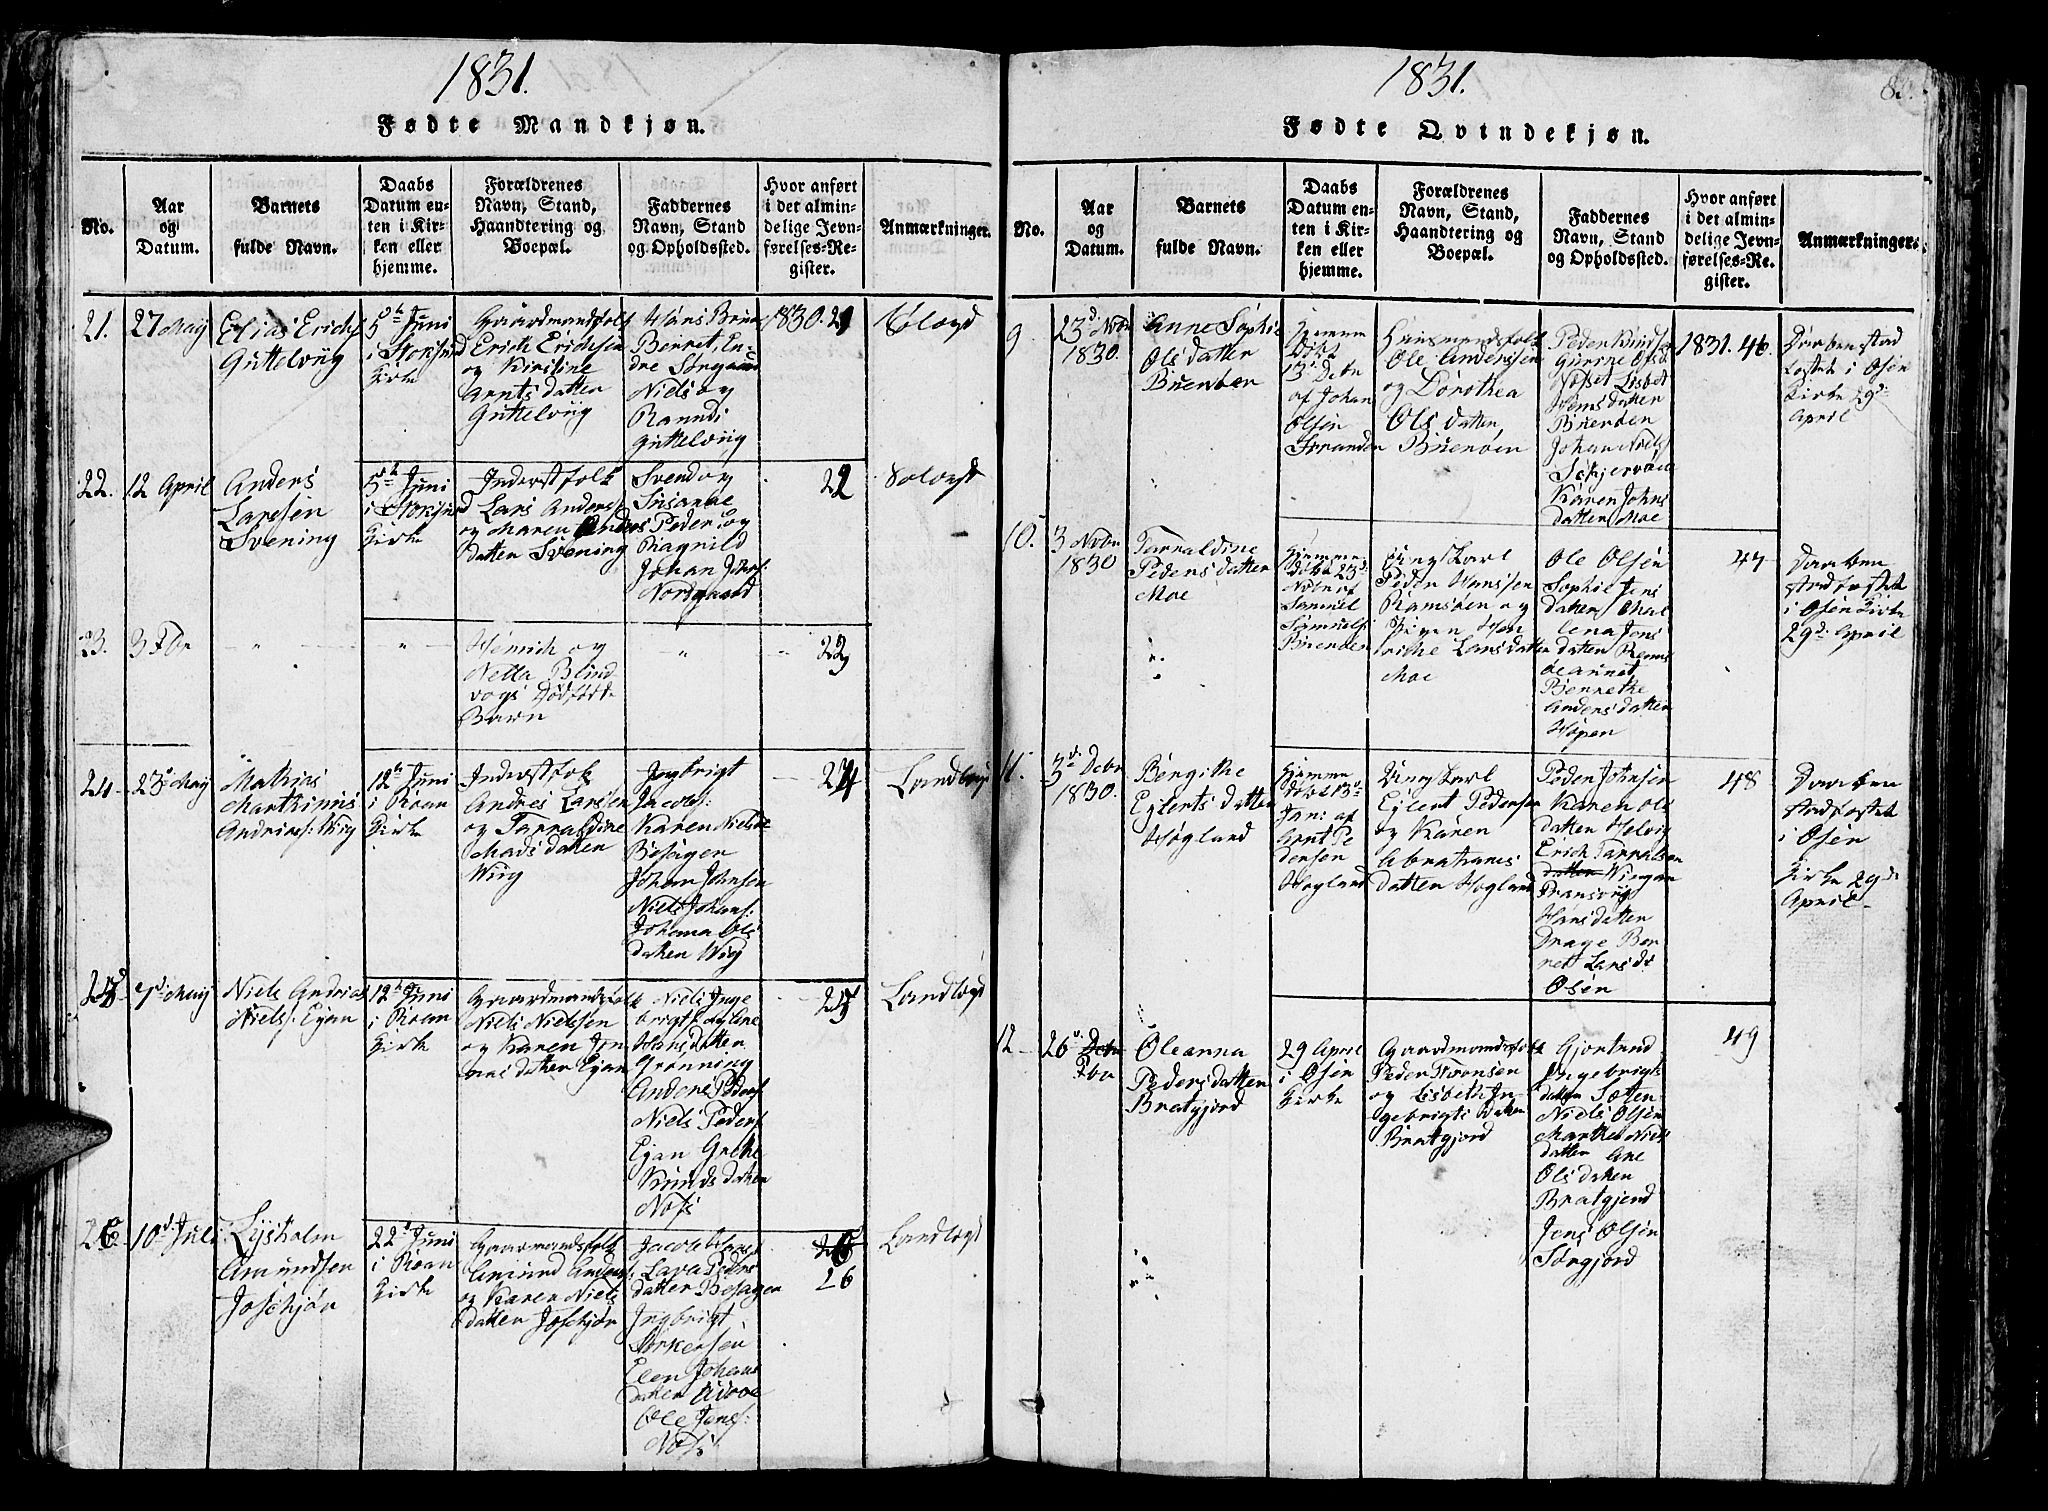 1831.
Fødte Mandkjøn.
No.
Aar
og
Datum.
Barnets
fulde Navn.
Daabs
Datum en-
ten i Kir-
ken eller
hjemme.
Forældrenes
Navn, Stand,
Haandtering og
Boepæl.
Faddernes
Navn, Stand
og Opholdssted.
Hvor anført
i det almin-
delige Jevn-
førelses-Re-
gister.
Anmærkninger.
21.
27 May
Elias Erichs
Guttelviig
5th Juni
i Stoksund
Kirke
Gaardmandsfolk
Erich Erichsen
og Kirstine
Arntsdatter
Guttelviig
Hans
Berret, En-
dre Sørgaard
Niels og
Ranndi
Guttelviig
1830. 21
22.
12 April
Anders
Larsen
Svening
5th Juni
i Stoksund
Kirke
Inderstfolk
Lars Anders
og Maren Anders
datter Svening
Svend og
Susanae
Peder og
Ragnild
Johan Johns:
Nordgaard
22
23.
3 Fbr
"
"
Henrich og
Nella Blind
vogs Dødfødt
Barn
"
23
24
23 May
Mathias
Marthinus
Andrias: Wiig
12th Juni
i Roan
Kirke
Inderstfolk
Andres Larsen
og Tarraldine
Madsdatter
Wiig
Ingbrigt
Jacobs:
Karen Nielsd
Besagen
Johan Johnsen
Niels Johans:
Johana Ols
datter Wiig
24
Landlægd
25
7d May
Niels Andrias
Niels: Eian
12th Juni
i Roan
Kirke
Gaardmandsfolk
Niels Nielsen
og Karen Jon
nasdatter Eian
Niels Inge
brigts og Ane
Hansdatter
Grønning
Anders Peders
Niels Peders
Eian Grethe
Knudsdatter
Næss
25
Landlægd
26
10d Juli
Lysholm
Amundsen
Joschjør
22d Juni
i Roan
Kirke
Gaarmandsfolk
Amund Anders
og Karen Niels
datter Joschjør
Jacob Hans
Lava Peders
datter Besagen
Ingbrigt
Størkersen
Elen Johans
datter
Ole Jons:
Næss
26
26
Landlægd
1831.
Fødte Qvindekjøn.
No.
Aar
og
Datum.
Barnets
fulde Navn.
Daabs
Datum en-
ten i Kir-
ken eller
hjemme.
Forældrenes
Navn, Stand,
Haandtering og
Boepæl.
Faddernes
Navn, Stand
og Opholdssted.
Hvor anført
i det almin-
delige Jevn-
førelses-Re-
gister.
Anmærkninger.
9
23d Nvbr
1830.
Anne Sophie
Olsdatter
Buenøen
hjemme
Døbt
13d Debr
af Johan
Olsen
Stranden
Huusmandsfolk
Ole Anderssen
og Dorothea
Olsdatter
Buenøen
Peder Knuds
Gurrne Olsd
Næsset Lisbet
Hemsdatter
Buenøen
Johan Niels
Schjervøen
Karen Johns
datter Moe
1831. 46.
Daaben stad
festet i Osen
Kirke 29d
April
10.
3 Nvbr
1830
Tarraldine
Pedersdatter
Moe
Hjemme
døbt 23d
Nvbr af
Samuel
Samuels
Buenøen
Ungkarl
Peder Hanssen
Ramsøen og
Pigen Hen
riche Larsdatter
Moe
Ole Olsen
Sophie Jens
datter Mal
lena Jons
datten
Bennethe
Andersdatter
Høpen
47
Daaben
stadfæstet
i Osen Kirke
29d April
11.
3d Debr
1830.
Bergithe
Eilertsdatter
Høgland
Hjemme
døbt 13de
Jan: af
Arnt Pe
dersen
Høgland
Ungkarl
Eilert Pedersen
og Karen
Abrahams
datter Høgland
Peder Johnsen
Karen Ols
datter Helvig
Erich Tarralsen
datter Wingan
Hansdatter
Drage Ber
ret Larsdr
Osen
48
Daaben
stadfæstet
i Osen
Kirke 29d
April
12
26d Debr
Fbr
Oleanna
Pedersdatter
Bratgjord
29 April
i Osen
Kirke
Gaardmandsfolk
Peder Thronsen
og Lisbeth In
gebrigts datter
Bratgjord
Gjertrud
Ingebrigt
datter Sætter
Niels Olsen
Marthe Niels
datter Ane
Olsdatter
Bratgjerd
Jens Olsen
Sørgjord
49